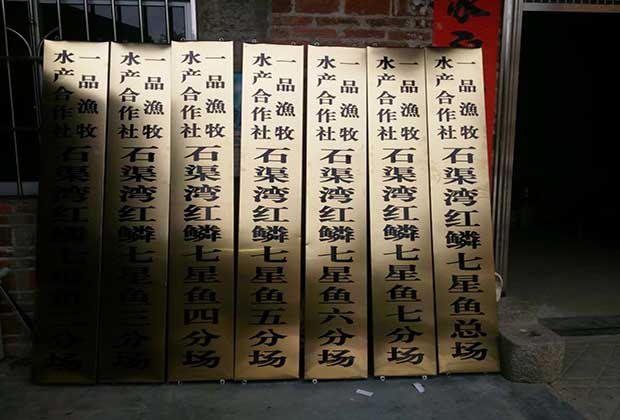 一品漁牧
水产合作社
石渠湾红鳞七星鱼总场
一品漁牧
水产合作社
石渠湾红鳞七星鱼七分场
一品漁牧
水产合作社
石渠湾红鳞七星鱼六分场
一品漁牧
水产合作社
石渠湾红鳞七星鱼五分场
一品漁牧
水产合作社
石渠湾红鳞七星鱼四分场
一品漁牧
水产合作社
石渠湾红鳞七星鱼三分场
一品漁牧
水产合作社
石渠湾红鳞七星鱼二分场